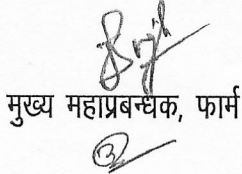 मुख्य महाप्रबन्धक, फार्म